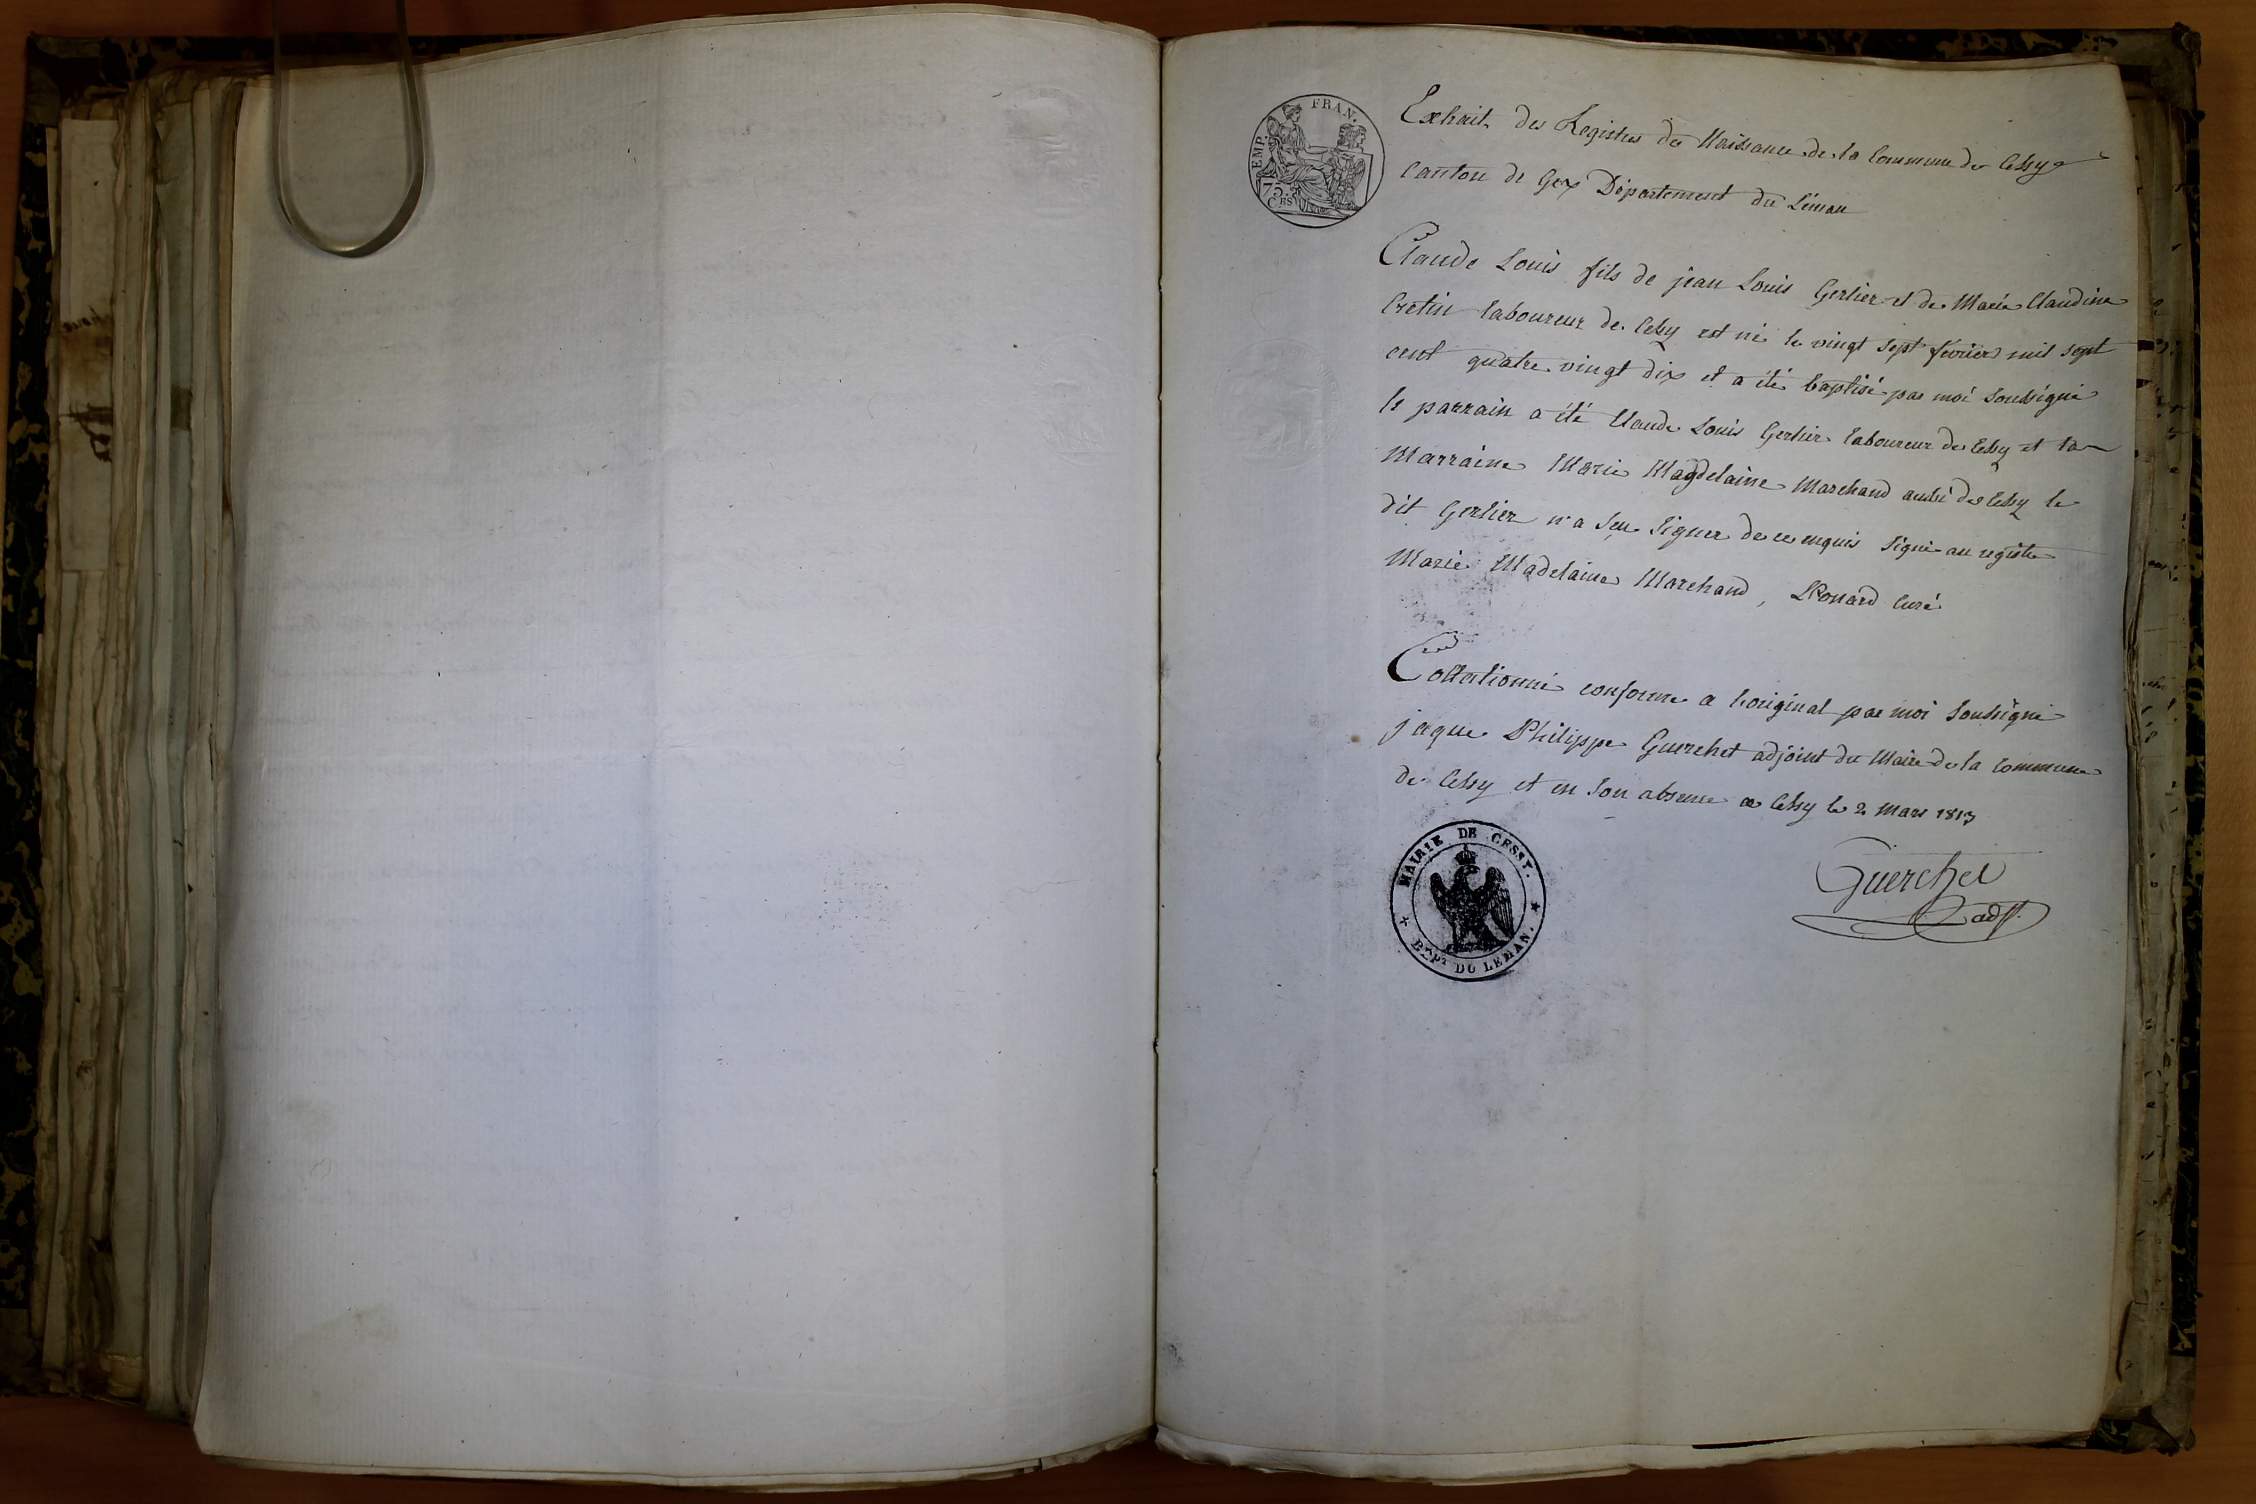 EMP. FRAN.
75. CES
Extrait des Registres de Naissance de la Commune de Cessy
Canton de Gex Département du Léman
Claude Louis fils de jean Louis Gerlier et de Marie Claudine
Cretin laboureur de Cessy est né le vingt sept fevrier mil sept
cent quatre vingt dix et a été baptisé par moi soussigné
le parrain a été Claude Louis Gerlier laboureur de Cessy et la
Marraine Marie Magdelaine Marchand aussi de Cessy le
dit Gerlier n'a seu signer de ce enquis signé au registre
Marie Madelaine Marchand, Leonard Curé
Collationné conforme a l'original par moi soussigné
jaque Philippe Guerchet adjoint du Maire de la Commune
de Cessy et en son absence a Cessy le 2 Mars 1813
Guerchet
adjt.
MAIRIE DE CESSY.
DEPT DU LEMAN.